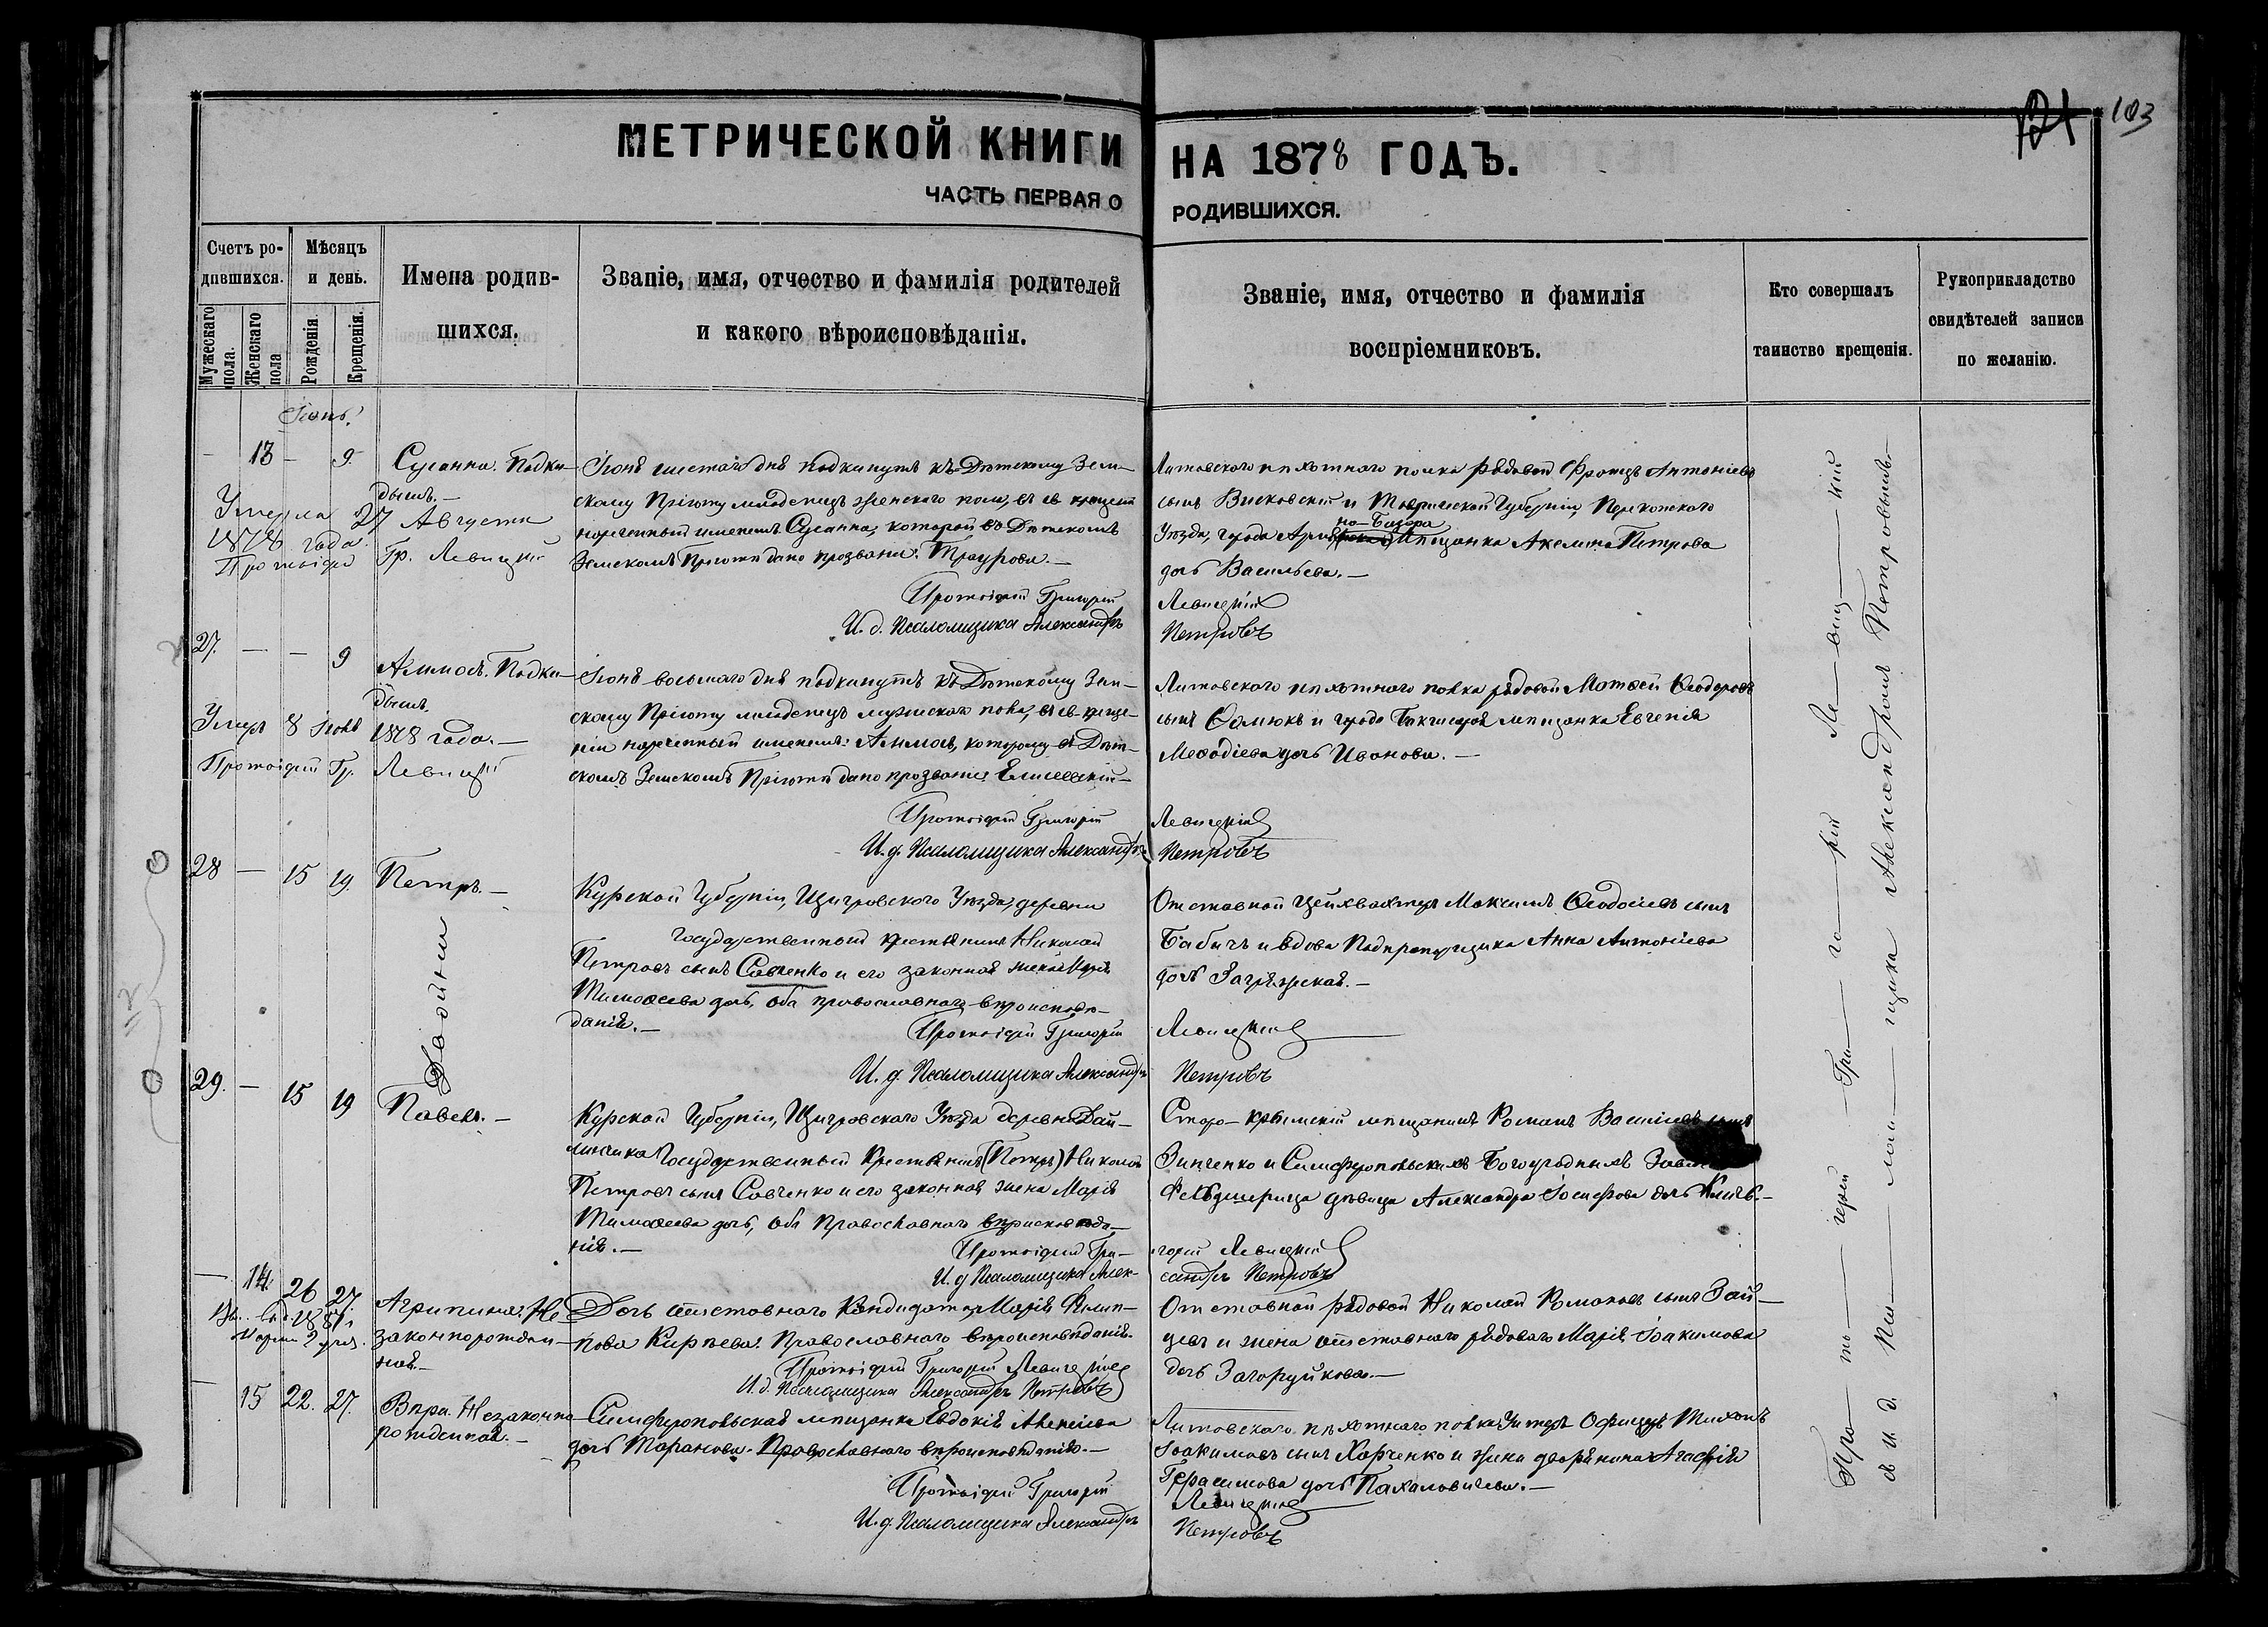 103
МЕТРИЧЕСКОЙ КНИГИ НА 1878 ГОДЪ.
ЧАСТЬ ПЕРВАЯ О РОДИВШИХСЯ.
Счетъ родившихся.
Мужескаго пола.
Женскаго пола
Мѣсяцъ и день.
Рожденія.
Крещенія.
Имена родившихся.
Званіе, имя, отчество и фамилія родителей
и какого вѣроисповѣданія.
Званіе, имя, отчество и фамилія
воспріемниковъ.
Кто совершалъ
таинство крещенія.
Рукоприкладство
свидѣтелей записи
по желанію.
Іюнь.
— 13 — 9. Сусанна. Подки-
дышъ.—
Умерла 27 Августа
1878 года.
Протоіерей Гр. Левицкій
Іюня шестаго дня подкинутъ къ Дѣтскому Зем-
скому Пріюту младенецъ женскаго пола, въ св. крещеніи
нареченный именемъ Сусанна, которой въ Дѣтскомъ
Земскомъ Пріютѣ дано прозваніе: Траурова.—
Протоіерей Григорій Левицкій
И. д. Псаломщика Александръ Петровъ
Литовскаго пѣхотнаго полка рядовой Францъ Антоніевъ
сынъ Висковскій и Таврической Губерніи, Перекопскаго
Уѣзда, города Армянскаго-Базара мѣщанка Акелина Петрова
дочь Васильева.—
27. — — 9 Аммосъ. Подки-
дышъ.
Умеръ 8 Іюля 1878 года.—
Протоіерей Гр. Левицкій
Іюня восьмаго дня подкинутъ къ Дѣтскому Зем-
скому Пріюту младенецъ мужескаго пола, въ св. креще-
ніи нареченный именемъ: Аммосъ, которому въ Дѣт-
скомъ Земскомъ Пріютѣ дано прозваніе Елисеевскій—
Протоіерей Григорій Левицкій
И. д. Псаломщика Александръ Петровъ
Литовскаго пѣхотнаго полка рядовой Матѳей Ѳеодоровъ
сынъ и города Бахчисарая мѣщанка Евгенія
Меѳодіева дочь Иванова.—
28 — 15 19. Петръ.—
Двойни
Курской Губерніи, Щигровскаго Уѣзда, деревни
Государственный крестьянинъ Николай
Петровъ сынъ Савченко и его законная жена Марія
Тимоѳеева дочь, оба православнаго вѣроисповѣ-
данія.—
Протоіерей Григорій Левицкій
И. д. Псаломщика Александръ Петровъ
Отставной Цейхвахтеръ Максимъ Ѳеодосіевъ сынъ
Бабичъ и вдова Подпрапорщика Анна Антоніева
дочь Загряжская.—
29. — 15 19 Павелъ.—
Курской Губерніи, Щигровскаго Уѣзда деревни
Государственный Крестьянинъ (Петръ) Николай
Петровъ сынъ Савченко и его законная жена Марія
Тимоѳеева дочь, оба Православнаго вѣроисповѣда-
нія.—
Протоіерей Григорій Левицкій
И. д. Псаломщика Александръ Петровъ
Старо-крымскій мѣщанинъ Романъ Васильевъ сынъ
Зинченко и Симферопольскихъ Богоугодныхъ
Фельдшерица дѣвица Александра Іосифова дочь
— 14. 26 27. Агрипина. Не-
законнорожден-
ная.—
Дочь отставнаго Кандидата Марія Филип-
пова Кирѣева. Православнаго вѣроисповѣданія.
Протоіерей Григорій Левицкій
И. д. Псаломщика Александръ Петровъ
Отставной рядовой Николай Романовъ сынъ Зай-
цевъ и жена отставнаго рядоваго Марія Іоакимова
дочь Загоруйкова.—
— 15 22. 27. Вѣра. Незаконно-
рожденная.—
Симферопольская мѣщанка Евдокія Алексіева
дочь Таранова. Православнаго вѣроисповѣданія.—
Протоіерей Григорій Левицкій
И. д. Псаломщика Александръ Петровъ
Литовскаго пѣхотнаго полка Унтеръ Офицеръ Тихонъ
Іоакимовъ сынъ Харченко и жена дворянина Агафія
Герасимова дочь Пахаловичева.—
Протоіерей Григорій Левицкій
съ и. д. Псаломщика Александромъ Петровымъ.—